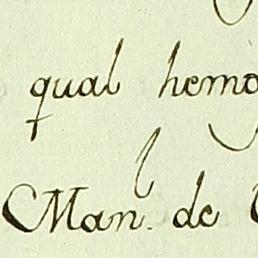 qual hemo
Man. de